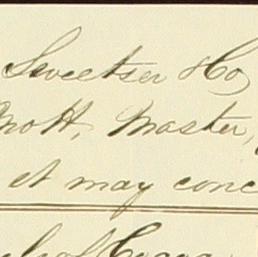 Sweetser & Co
Mott, Master,
it may conc